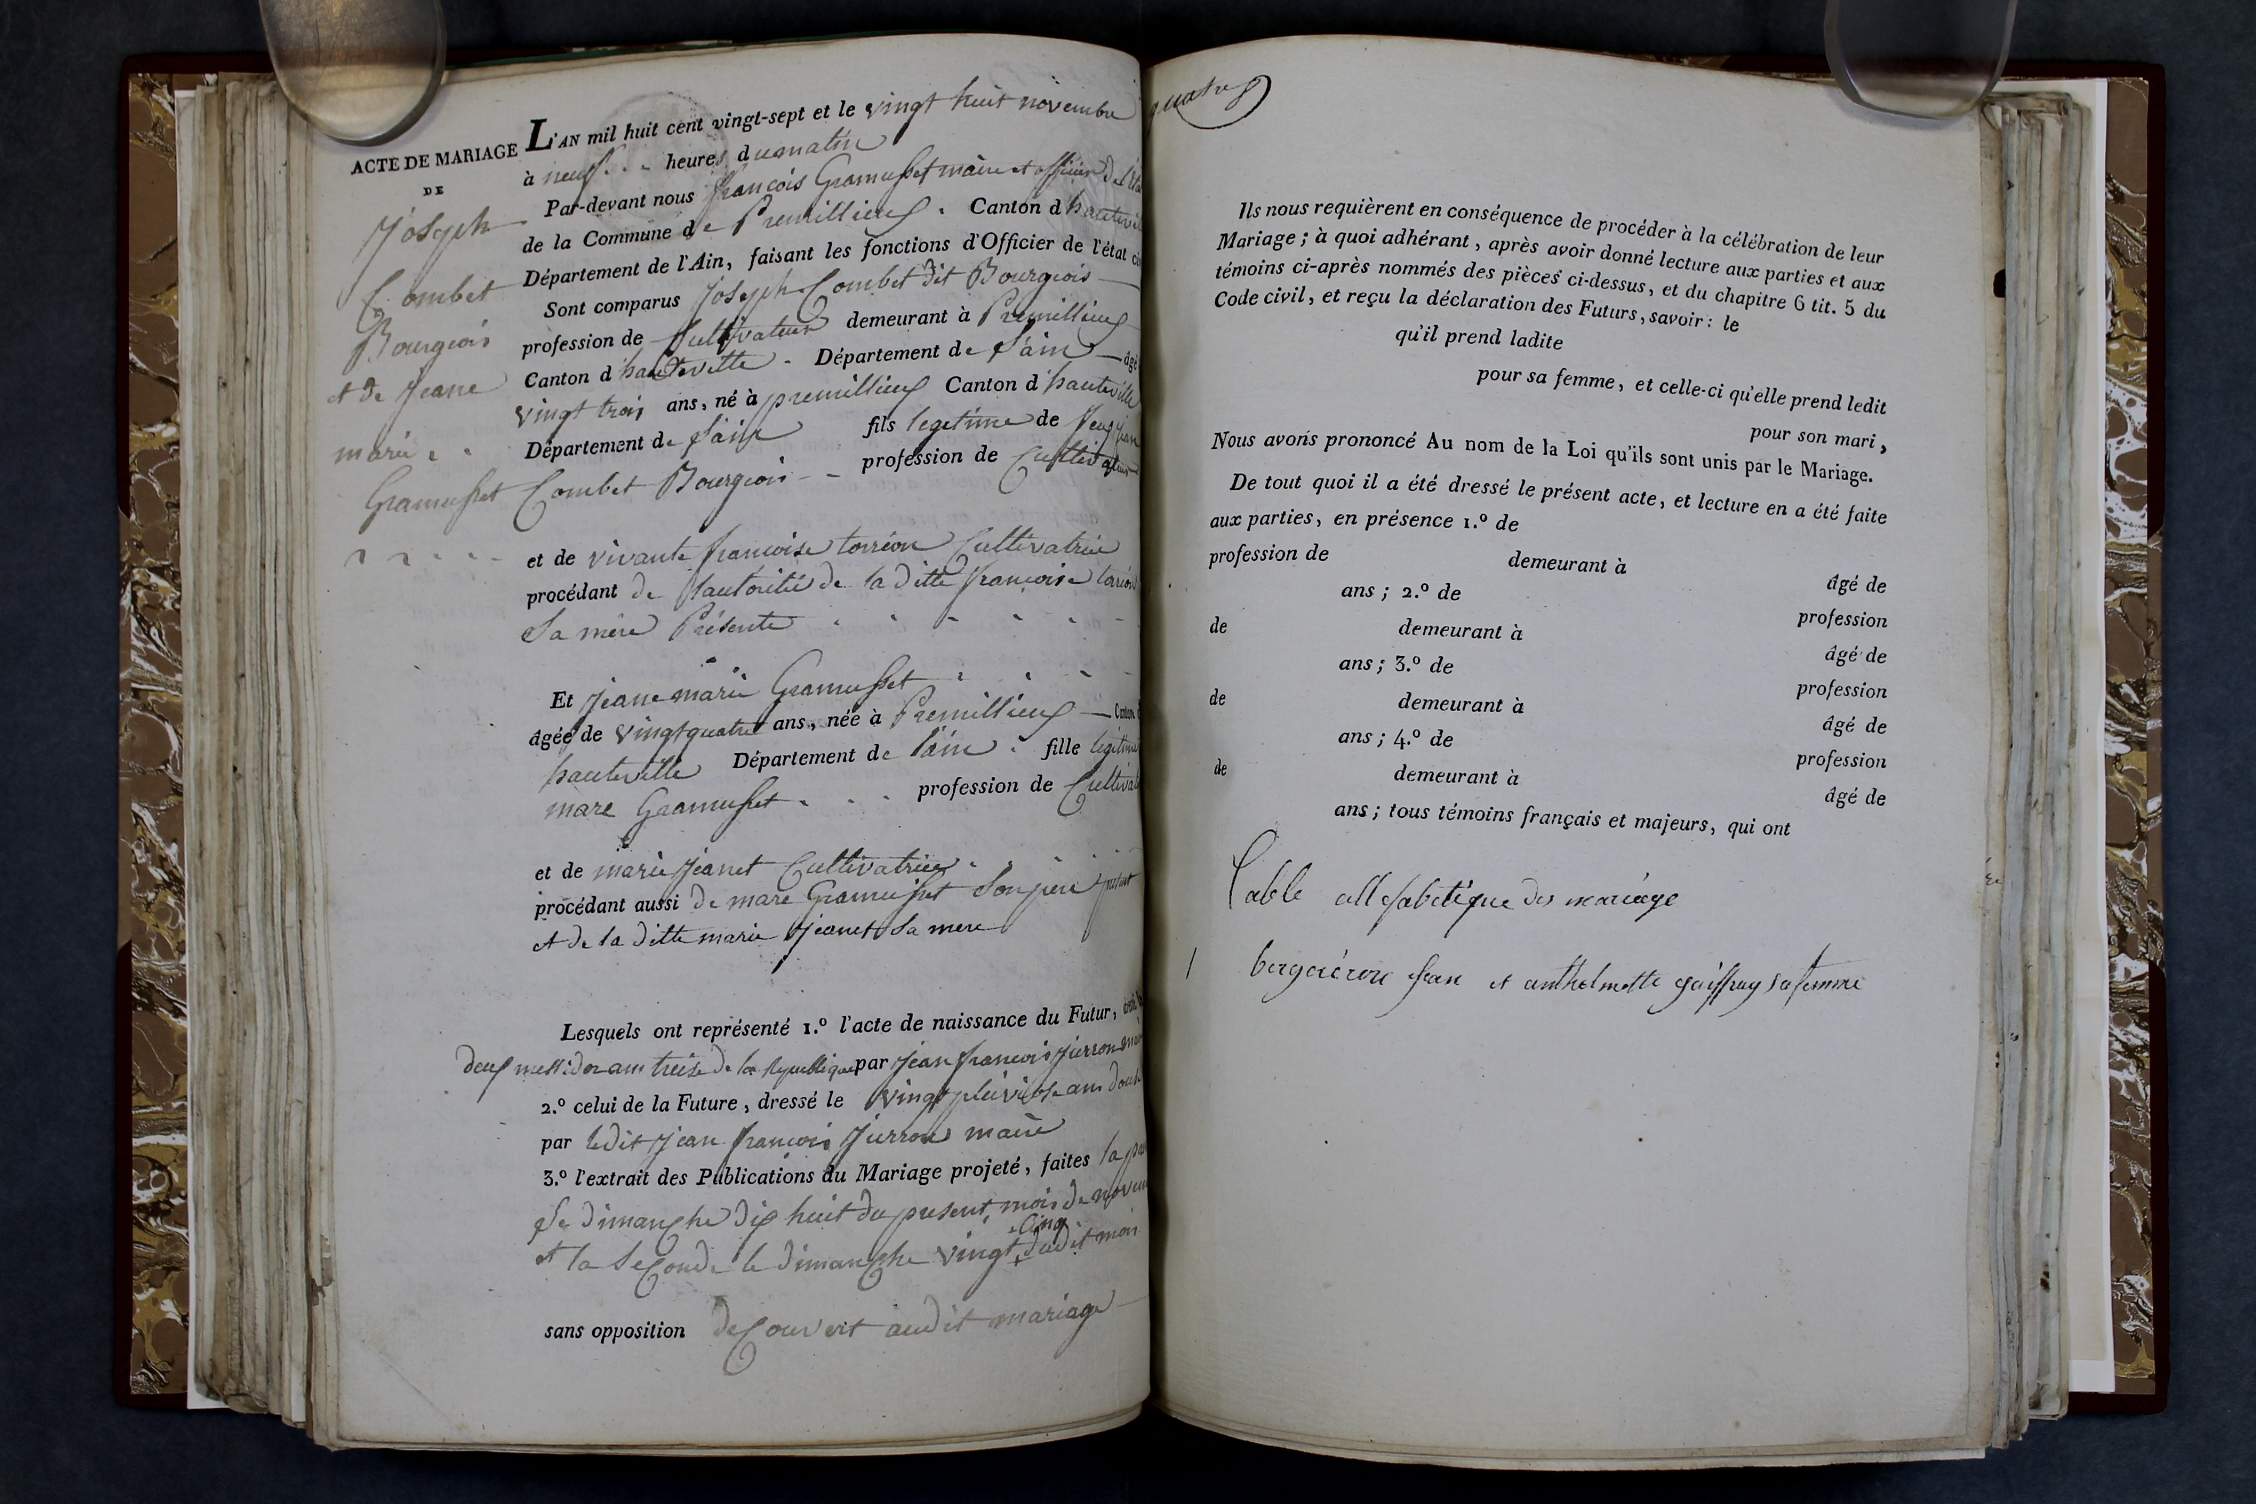 ACTE DE MARIAGE
DE
Joseph
Combet
Bourgeois
et de Jeane
marie
Gramusset
L'AN mil huit cent vingt-sept et le vingt huit novembre
à neuf heures du matin
Par-devant nous francois Gramusset maire et officier de l'éta
de la Commune de Premillieux. Canton d hautevil
Département de l'Ain, faisant les fonctions d'Officier de l'état ci
Sont comparus Joseph Combet dit Bourgeois
profession de Cultivateur demeurant à Premillieux
Canton d hauteville - Département de l'ain âgé
vingt trois ans, né à premillieux Canton d'hauteville
Département de l'ain fils legetime de feu jean
Combet Bourgeois - - profession de Cultivateur
et de vivante francoise torréon Cultivatrice
procédant de l'autoritée de la ditte francoise torréon
Sa mère Présente
Et Jeane marie Gramusset
âgée de vingt quatre ans, née à Premillieux Canton d
hauteville Département de l'ain. fille legitime
marc Gramusset. profession de Cultivat
et de marie Jeanet Cultivatrice
procédant aussi de marc Gramusset Son pere présent
et de la ditte marie Jeanet Sa mere
Lesquels ont représenté 1.º l'acte de naissance du Futur, dressé le
deux messidor an treise de la Republique par Jean francois Juron mai
2.º celui de la Future, dressé le vingt pluviose an douse
par ledit Jean francois Jurron maire
3.º l'extrait des Publications du Mariage projeté, faites la pre
Le dimanche dix huit du present mois de novem
et la Seconde le dimanche vingt cinq dudit mois
sans opposition decouvert audit mariage
quatre
Ils nous requièrent en conséquence de procéder à la célébration de leur
Mariage; à quoi adhérant, après avoir donné lecture aux parties et aux
témoins ci-après nommés des pièces ci-dessus, et du chapitre 6 tit. 5 du
Code civil, et reçu la déclaration des Futurs, savoir: le
qu'il prend ladite
pour sa femme, et celle-ci qu'elle prend ledit
pour son mari,
Nous avons prononcé Au nom de la Loi qu'ils sont unis par le Mariage.
De tout quoi il a été dressé le présent acte, et lecture en a été faite
aux parties, en présence 1.º de
profession de demeurant à âgé de
ans; 2.º de profession
de demeurant à âgé de
ans; 3.º de profession
de demeurant à âgé de
ans; 4.º de profession
de demeurant à âgé de
ans; tous témoins français et majeurs, qui ont
Table allfabetique des mariage
1 bergeréron Jean et anthelmette gaiffray sa femme